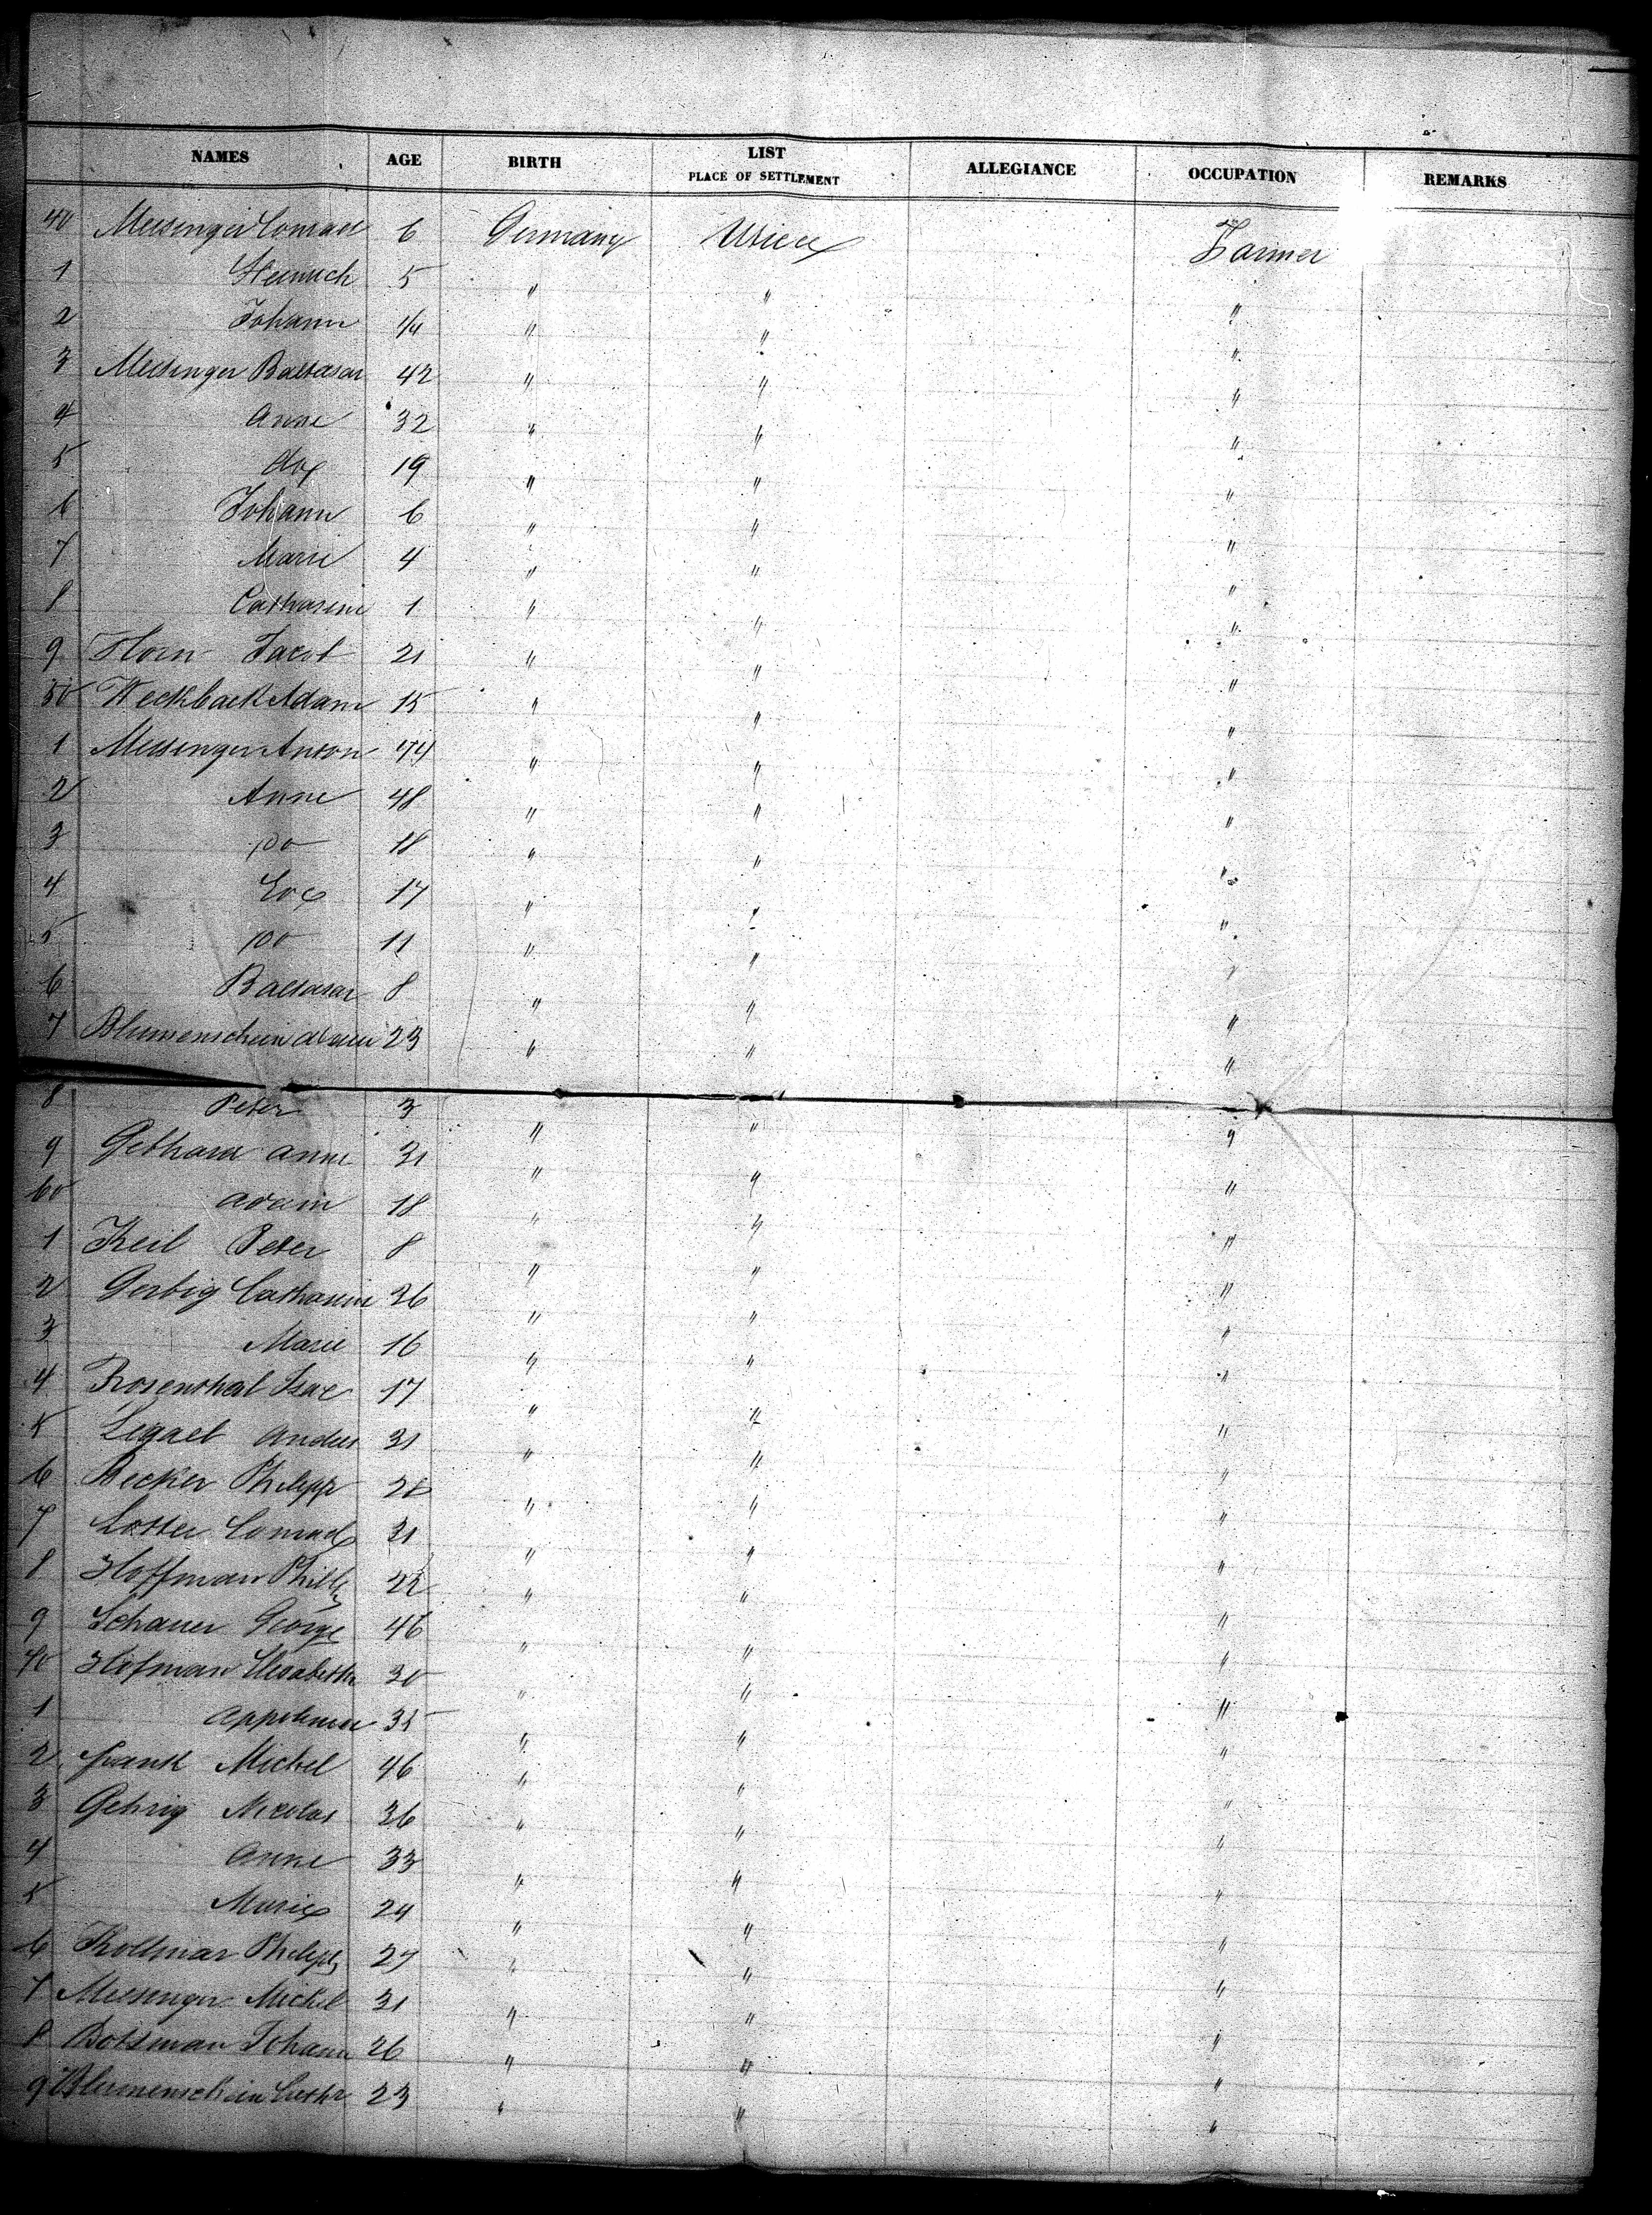 NAMES AGE BIRTH LIST PLACE OF SETTLEMENT ALLEGIANCE OCCUPATION REMARKS
40 Messinger Conrad 6 Germany Farmer
1 Heinrich 5 " " "
2 Johann " " "
3 Messinger Baltasar 42 " " "
4 Anne 32 " " "
5 19 " " "
6 Johann 6 " " "
7 Marie 4 " " "
8 Catharine 1 " " "
9 Horn Jacob 21 " " "
50 Weckback Adam 15 " " "
1 Messinger Anton 44 " " "
2 Anne 48 " " "
3 do 18 " " "
4 Eva 17 " " "
5 do 11 " " "
6 Baltasar 8 " " "
7 Blumenschein Adam 23 " " "
8 Peter 3 " " "
9 Gebhard Anne 31 " " "
60 Adam 18 " " "
1 Keil Peter 8 " " "
2 Gerbig Catharine 36 " " "
3 Marie 16 " " "
4 Rosenthal Isac 17 " " "
5 31 " " "
6 Becker Philipp 28 " " "
7 Conrad 31 " " "
8 Hoffman 22 " " "
9 Schauer George 46 " " "
70 Hofman Elisabeth 30 " " "
1 35 " " "
2 Frank Michel 46 " " "
3 Gehrig Nicolas 36 " " "
4 Anne 33 " " "
5 Marie 24 " " "
6 Kollmar Philipp 27 " " "
7 Messinger Michel 31 " " "
8 Botsman Johann 26 " " "
9 Blumenschein Cathr 23 " " "